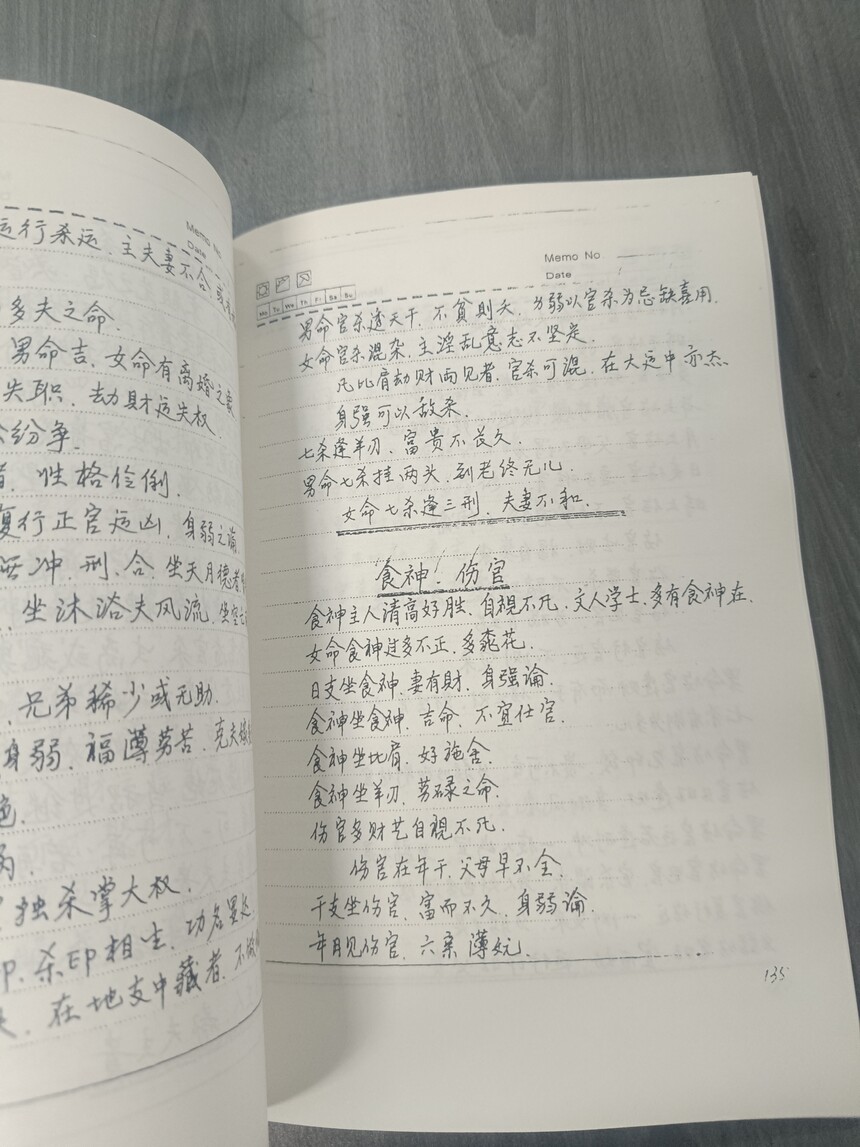 运行杀运、主夫妻不合、或
多夫之命.
男命吉，女命有离婚之
失职，劫财运失权
纷争.
性格伶俐.
复行正官运凶，身弱之论
冲、刑、合.坐天月德者
坐沐浴夫风流，坐空亡
兄弟稀少或无助.
身弱，福薄劳苦，克夫
独杀掌大权.
印，杀印相生，功名显达
在地支中藏者，不
Memo No.
Date
Mo Tu We Th Fr Sa Su
Memo No.
Date
男命官杀透天干，不貧則夭，为弱以官杀为忌缺喜用.
女命官杀混杂，主淫乱意志不坚定.
凡比肩劫财两见者，官杀可混，在大运中亦杰
身強可以敌杀.
七杀逢羊刃，富贵不長久.
男命七杀挂两头，到老终无儿.
女命七杀逢三刑，夫妻不和.
食神！伤官
食神主人清高好胜，自視不凡，文人学士，多有食神在.
女命食神过多不正，多桃花.
日支坐食神，妻有財，身强論.
食神坐食神，吉命，不宜仕官.
食神坐比肩，好施舍.
食神坐羊刃，劳碌之命.
伤官多财艺自視不凡.
伤官在年干，父母早不全.
干支坐伤官，富而不久，身弱論.
年月见伤官，六亲薄
135